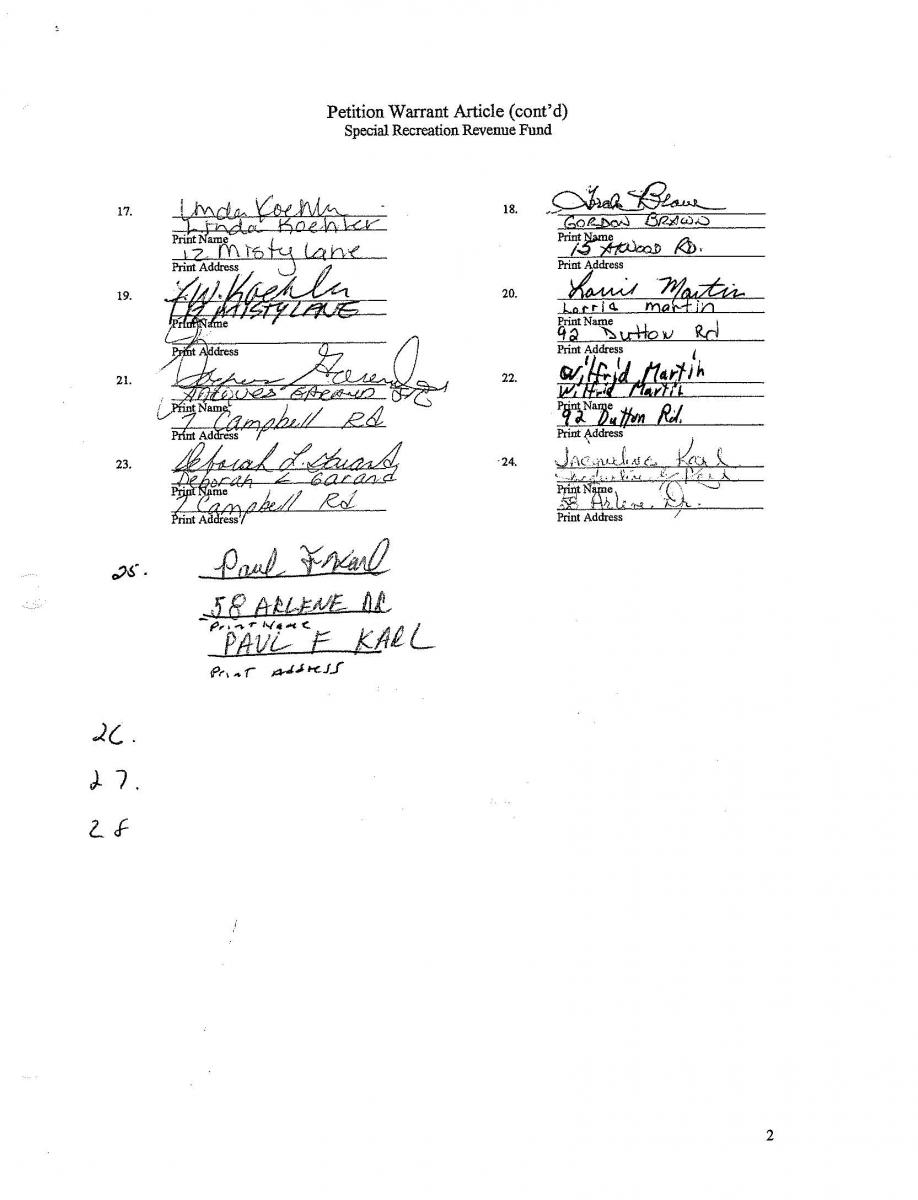 Petition Warrant Article (cont'd)
Special Recreation Revenue Fund
17.
Linda Koehler
Linda Koehler
Print Name
12 Misty Lane
Print Address
18.
Brown
GORDON BROWN
Print Name
15 Atwood RD.
Print Address
19.
Koehler
12 MISTY LANE
Print Name
Print Address
20.
Martin
Lorria martin
Print Name
92 Dutton Rd
Print Address
21.
Garand
JACQUES GARAND
Print Name
7 Campbell Rd
Print Address
22.
Wilfrid Martin
Wilfrid Martin
Print Name
92 Dutton Rd.
Print Address
23.
Deborah L. Garand
Deborah L Garand
Print Name
7 Campbell Rd
Print Address
24.
Jacqueline Karl
Print Name
58 Arlene Dr.
Print Address
25.
Paul F Karl
58 ARLENE DR
Print Name
PAUL F KARL
Print Address
26.
27.
28
2